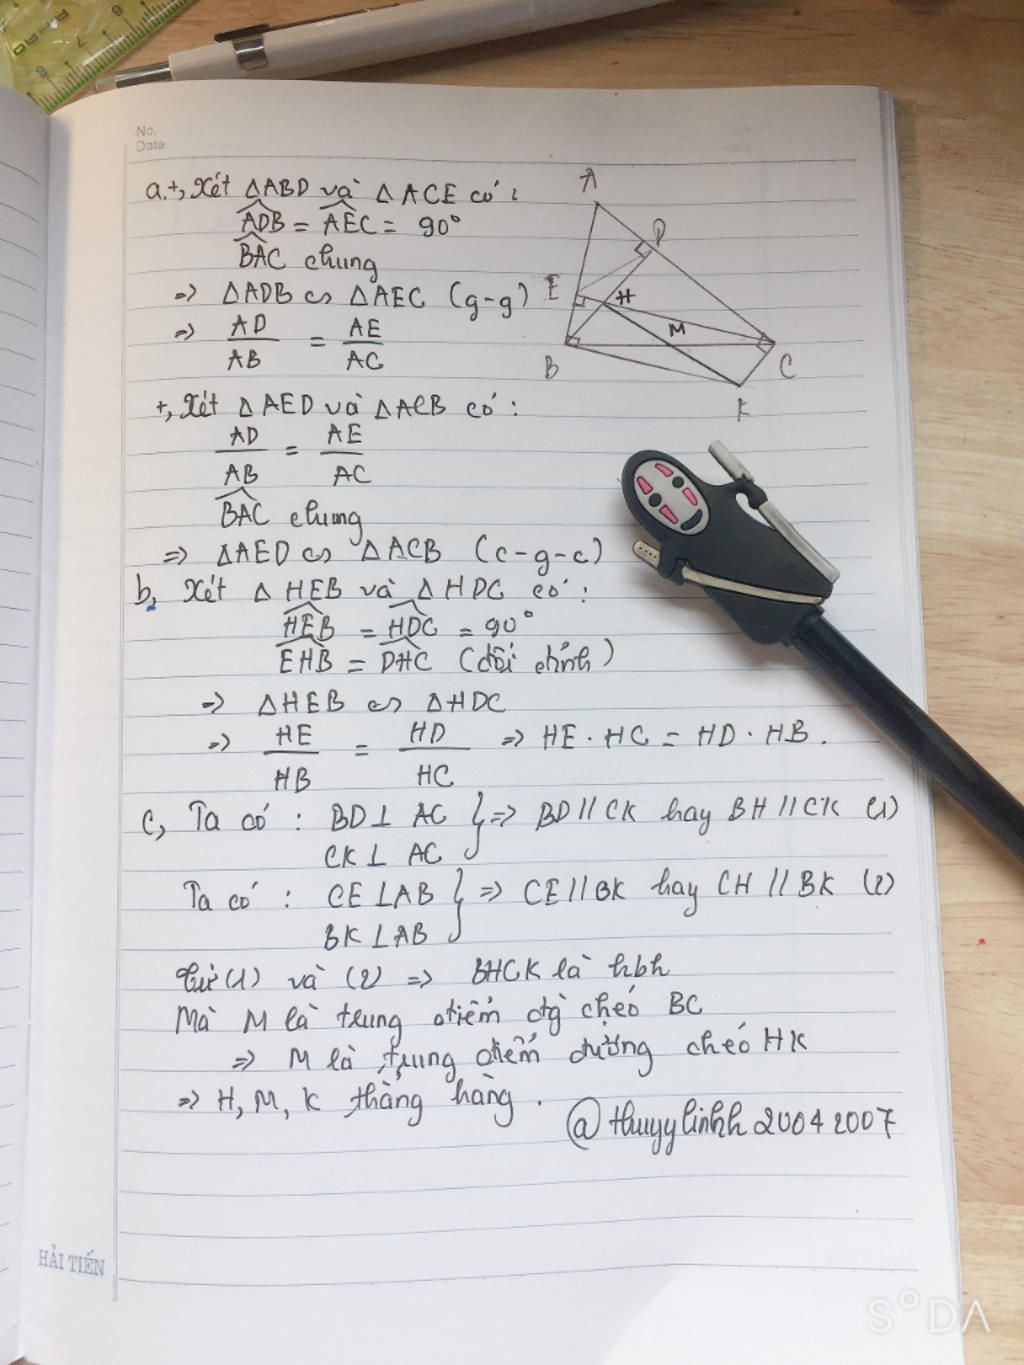 No.
Date
a.+, Xét ΔABD và ΔACE có:
ADB = AEC = 90°
BAC chung
=> ΔADB ∽ ΔAEC (g-g)
=> AD/AB = AE/AC
+, Xét ΔAED và ΔACB có:
AD/AB = AE/AC
BAC chung
=> ΔAED ∽ ΔACB (c-g-c)
b, Xét ΔHEB và ΔHDC có:
HEB = HDC = 90°
EHB = DHC (đối đỉnh)
=> ΔHEB ∽ ΔHDC
=> HE/HB = HD/HC => HE . HC = HD . HB .
c, Ta có : BD⊥ AC } => BD // CK hay BH // CK (1)
CK⊥ AC
Ta có : CE ⊥AB } => CE // BK hay CH // BK (2)
BK⊥AB
Từ (1) và (2) => BHCK là hbh
Mà M là trung điểm đg chéo BC
=> M là trung điểm đường chéo HK
=> H, M, K thẳng hàng .
@thuyylinhh20042007
A
D
E
H
M
B
C
K
HẢI TIẾN
S°DA